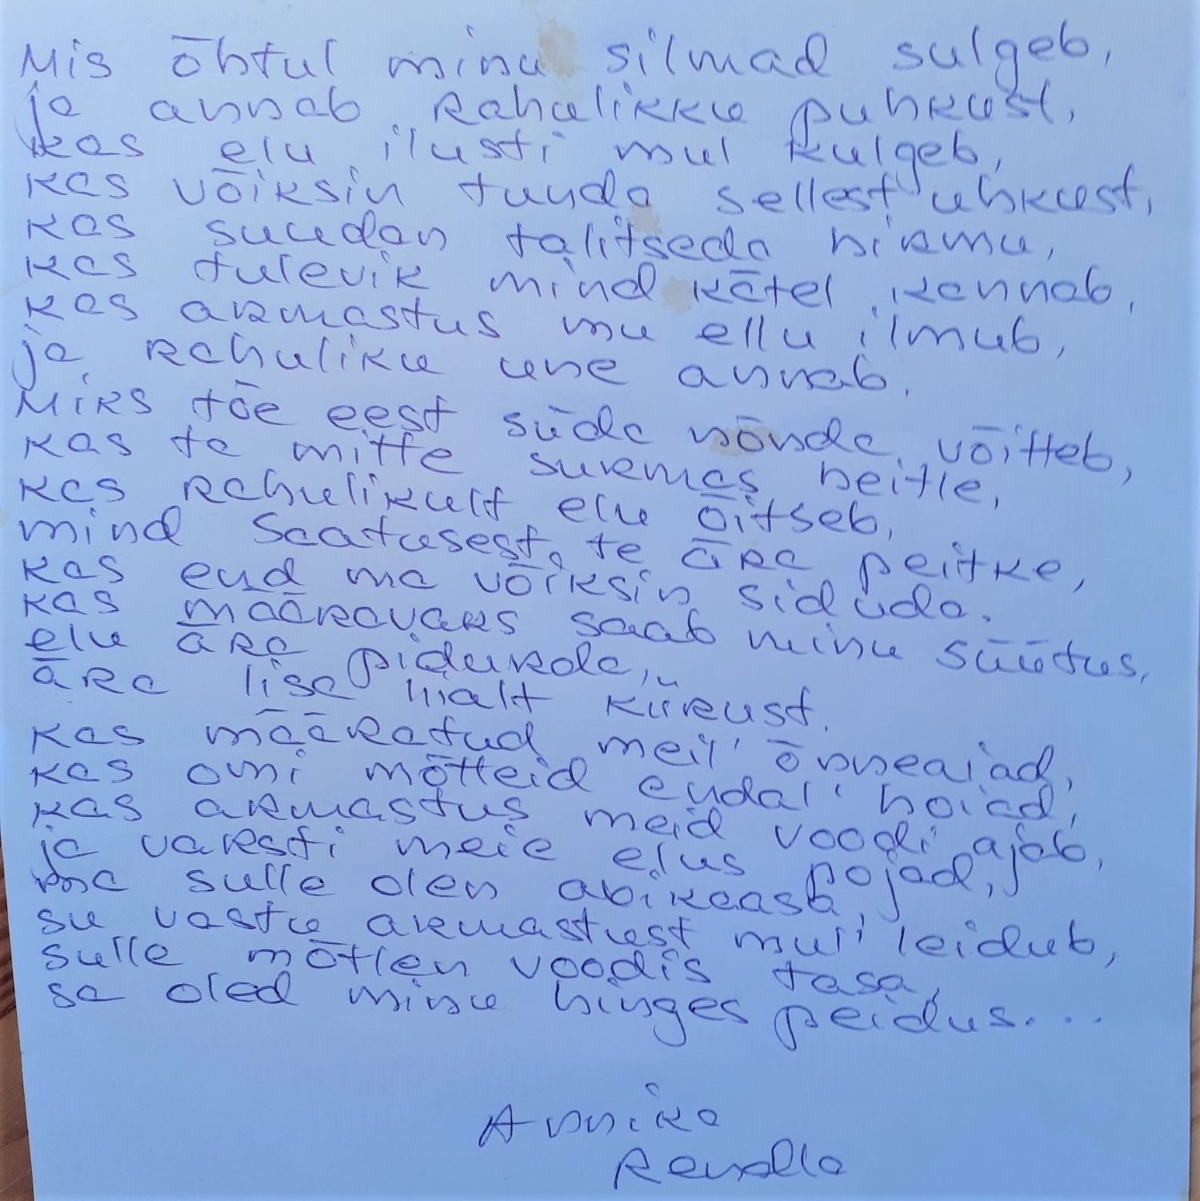 Mis õhtul minu silmad sulgeb,
ja annab rahulikku puhkust,
kas elu ilusti mul kulgeb,
kas võiksin tunda sellest uhkust,
kas suudan talitseda hirmu,
kas tulevik mind kätel kannab,
kas armastus mu ellu ilmub,
ja rahuliku une annab.
Miks tõe eest süda nõnda võitleb,
kas te mitte surmas heitle,
kas rahulikult elu õitseb,
mind saatusest te ära peitke,
kas end ma võiksin siduda,
kas määravaks saab minu süütus,
elu ära pidurda,
ära lisa hialt kiirust.
kas määratud meil' õnneajad,
kas omi mõtteid endal' hoiad,
kas armastus meid voodi ajab,
ja varsti meie elus pojad,
ma sulle olen abikaasa,
su vastu armastust mul' leidub,
sulle mõtlen voodis tasa,
sa oled minu hinges peidus....
Annika